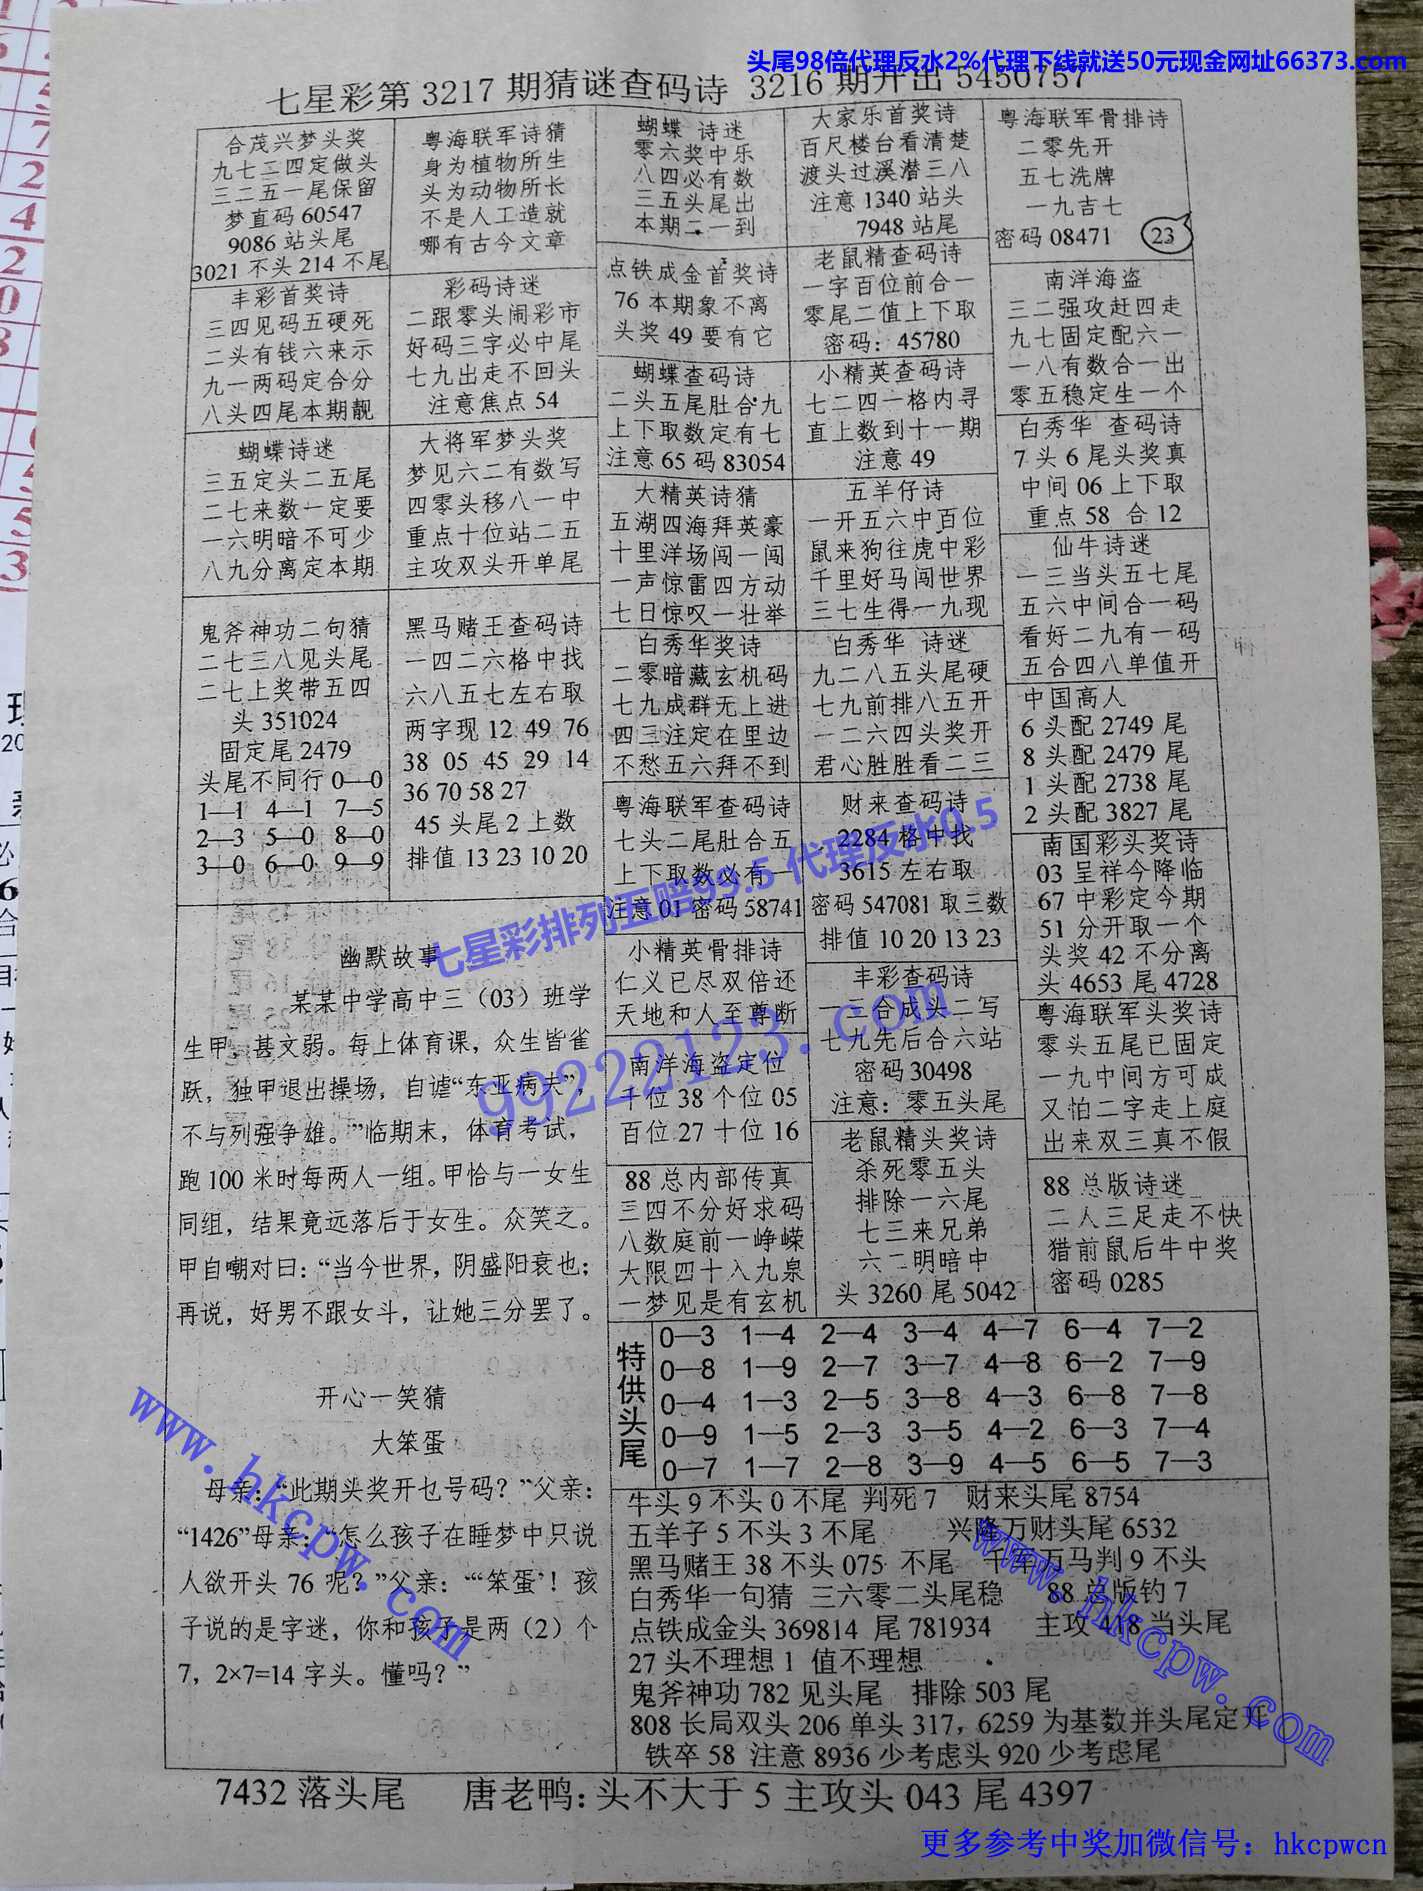 头尾98倍代理反水2%代理下线就送50元现金网址66373.com
七星彩第3217期猜谜查码诗 3216期开出5450757
合茂兴梦头奖
九七二四定做头
三二五一尾保留
梦直码60547
9086站头尾
3021不头214不尾
丰彩首奖诗
三四见码五硬死
二头有钱六来示
九一两码定合分
八头四尾本期靓
蝴蝶诗迷
三五定头二五尾
二七来数一定要
一六明暗不可少
八九分离定本期
鬼斧神功二句猜
二七三八见头尾
二七上奖带五四
头351024
固定尾2479
头尾不同行0—0
1—1 4—1 7—5
2—3 5—0 8—0
3—0 6—0 9—9
粤海联军诗猜
身为植物所生
头为动物所长
不是人工造就
哪有古今文章
彩码诗迷
二跟零头闹彩市
好码三字必中尾
七九出走不回头
注意焦点54
大将军梦头奖
梦见六二有数写
四零头移八一中
重点十位站二五
主攻双头开单尾
黑马赌王查码诗
一四二六格中找
六八五七左右取
两字现12 49 76
38 05 45 29 14
36 70 58 27
45头尾2上数
排值13 23 10 20
蝴蝶 诗迷
零六奖中乐
八四必有数
三五头尾出
本期二一到
点铁成金首奖诗
76本期象不离
头奖49要有它
蝴蝶查码诗
二头五尾肚合九
上下取数定有七
注意65码83054
大精英诗猜
五湖四海拜英豪
十里洋场闯一闯
一声惊雷四方动
七日惊叹一壮举
白秀华奖诗
二零暗藏玄机码
七九成群无上进
四三注定在里边
不愁五六拜不到
粤海联军查码诗
七头二尾肚合五
上下取数必有一
注意01密码58741
小精英骨排诗
仁义已尽双倍还
天地和人至尊断
南洋海盗定位
千位38个位05
百位27十位16
88总内部传真
三四不分好求码
八数庭前一峥嵘
大限四十入九泉
一梦见是有玄机
大家乐首奖诗
百尺楼台看清楚
渡头过溪潜三八
注意1340站头
7948站尾
老鼠精查码诗
一字百位前合一
零尾二值上下取
密码：45780
小精英查码诗
七二四一格内寻
直上数到十一期
注意49
五羊仔诗
一开五六中百位
鼠来狗往虎中彩
千里好马闯世界
三七生得一九现
白秀华 诗迷
九二八五头尾硬
七九前排八五开
一二六四头奖开
君心胜胜看二三
财来查码诗
2284格中找
3615左右取
密码547081取三数
排值10 20 13 23
丰彩查码诗
一三合成头二写
七九先后合六站
密码30498
注意：零五头尾
老鼠精头奖诗
杀死零五头
排除一六尾
七三来兄弟
六二明暗中
头3260尾5042
粤海联军骨排诗
二零先开
五七洗牌
一九吉七
密码08471 23
南洋海盗
三二强攻赶四走
九七固定配六一
一八有数合一出
零五稳定生一个
白秀华 查码诗
7头6尾头奖真
中间06上下取
重点58 合12
仙牛诗迷
一三当头五七尾
五六中间合一码
看好二九有一码
五合四八单值开
中国高人
6头配2749尾
8头配2479尾
1头配2738尾
2头配3827尾
南国彩头奖诗
03呈祥今降临
67中彩定今期
51分开取一个
头奖42不分离
头4653尾4728
粤海联军头奖诗
零头五尾已固定
一九中间方可成
又怕二字走上庭
出来双三真不假
88总版诗迷
二人三足走不快
猎前鼠后牛中奖
密码0285
幽默故事
某某中学高中三（03）班学
生甲，甚文弱。每上体育课，众生皆雀
跃，独甲退出操场，自谑“东亚病夫”，
不与列强争雄。”临期末，体育考试，
跑100米时每两人一组。甲恰与一女生
同组，结果竟远落后于女生。众笑之。
甲自嘲对曰：“当今世界，阴盛阳衰也；
再说，好男不跟女斗，让她三分罢了。
开心一笑猜
大笨蛋
母亲：“此期头奖开乜号码？”父亲：
“1426”母亲：“怎么孩子在睡梦中只说
人欲开头76呢？”父亲：“‘笨蛋’！孩
子说的是字迷，你和孩子是两（2）个
7，2×7=14字头。懂吗？”
特供头尾
0—3 1—4 2—4 3—4 4—7 6—4 7—2
0—8 1—9 2—7 3—7 4—8 6—2 7—9
0—4 1—3 2—5 3—8 4—3 6—8 7—8
0—9 1—5 2—3 3—5 4—2 6—3 7—4
0—7 1—7 2—8 3—9 4—5 6—5 7—3
牛头9不头0不尾 判死7 财来头尾8754
五羊子5不头3不尾 兴隆万财头尾6532
黑马赌王38不头075 不尾 千军万马判9不头
白秀华一句猜 三六零二头尾稳 88总版钓7
点铁成金头369814 尾781934 主攻418当头尾
27头不理想1 值不理想
鬼斧神功782见头尾 排除503尾
808长局双头206单头317，6259为基数并头尾定开
铁卒58 注意8936少考虑头920少考虑尾
7432落头尾 唐老鸭：头不大于5主攻头043尾4397
七星彩排列五赔99.5 代理反水0.5
99222123.com
www.hkcpw.com
www.hkcpw.com
更多参考中奖加微信号：hkcpwcn